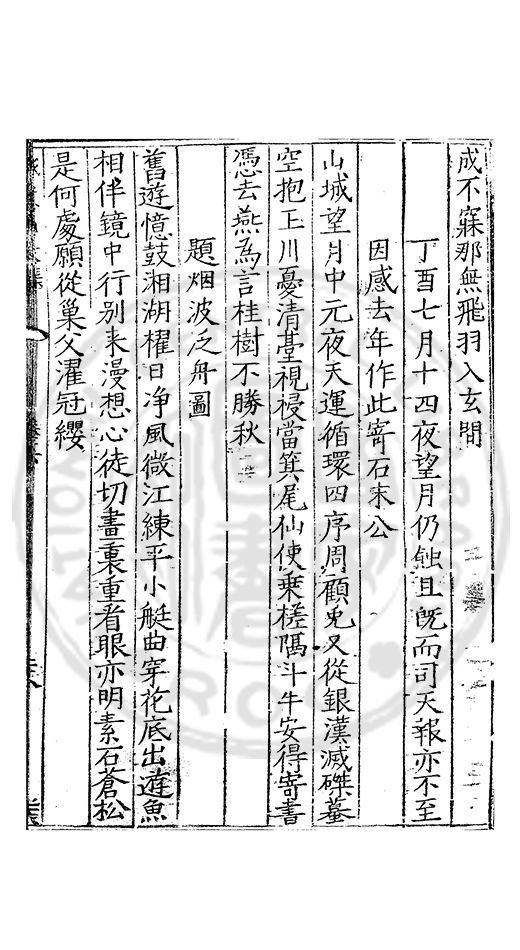 成不寐那無飛羽入玄間
丁酉七月十四夜望月仍蝕且既而司天報亦不至
因感去年作此寄石東公
山城望月中元夜天運循環四序周顧兎又從銀漢滅磔蟇
空抱玉川憂清臺視祲當箕尾仙使乗槎隔斗牛安得寄書
憑去燕為言桂樹不勝秋
題烟波泛舟圖
舊遊憶鼓湘湖櫂日净風微江練平小艇曲穿花底出遊魚
相伴鏡中行别来漫想心徒切畫裏重看眼亦明素石蒼松
是何處願從巢父濯冠纓